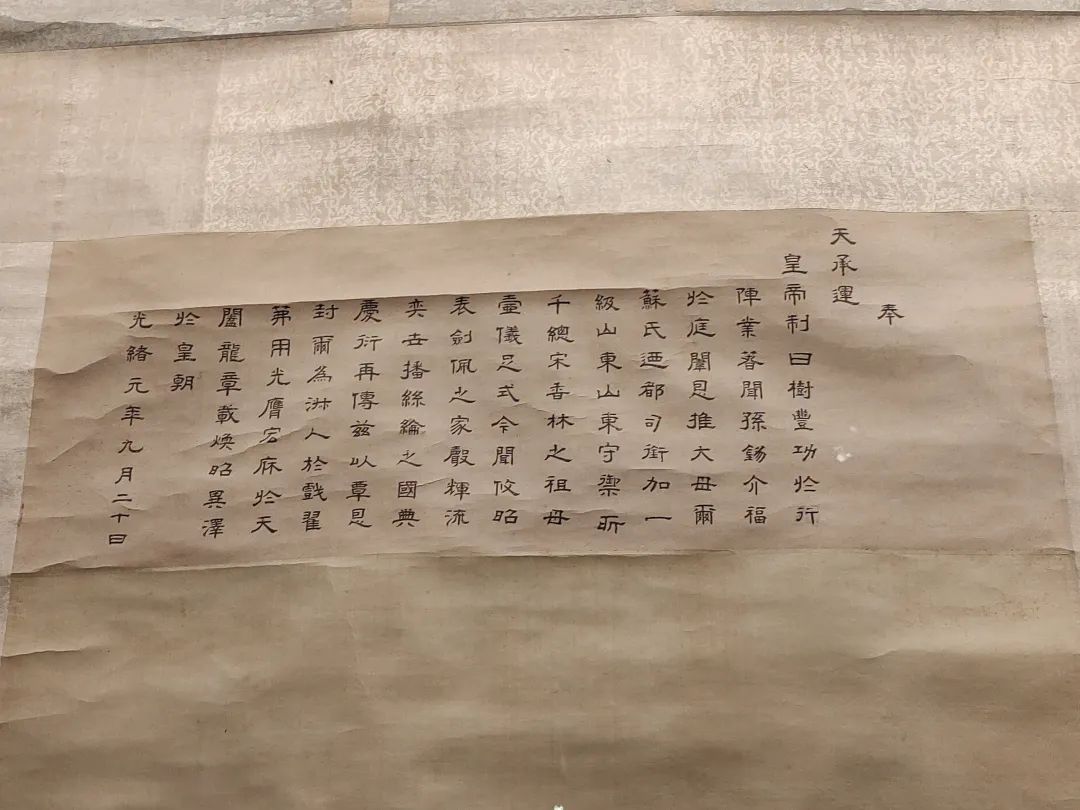 奉
天承運
皇帝制曰樹豐功於行
陣業著聞孫錫介福
於庭闈恩推大母爾
蘇氏迺都司銜加一
級山東山東守禦所
千總宋香林之祖母
壼儀足式令聞攸昭
表劍佩之家聲輝流
奕世播絲綸之國典
慶衍再傳茲以覃恩
封爾為淋人於戲翟
茀用光膺宏庥於天
闔龍章載煥昭異澤
於皇朝
光緒元年九月二十日